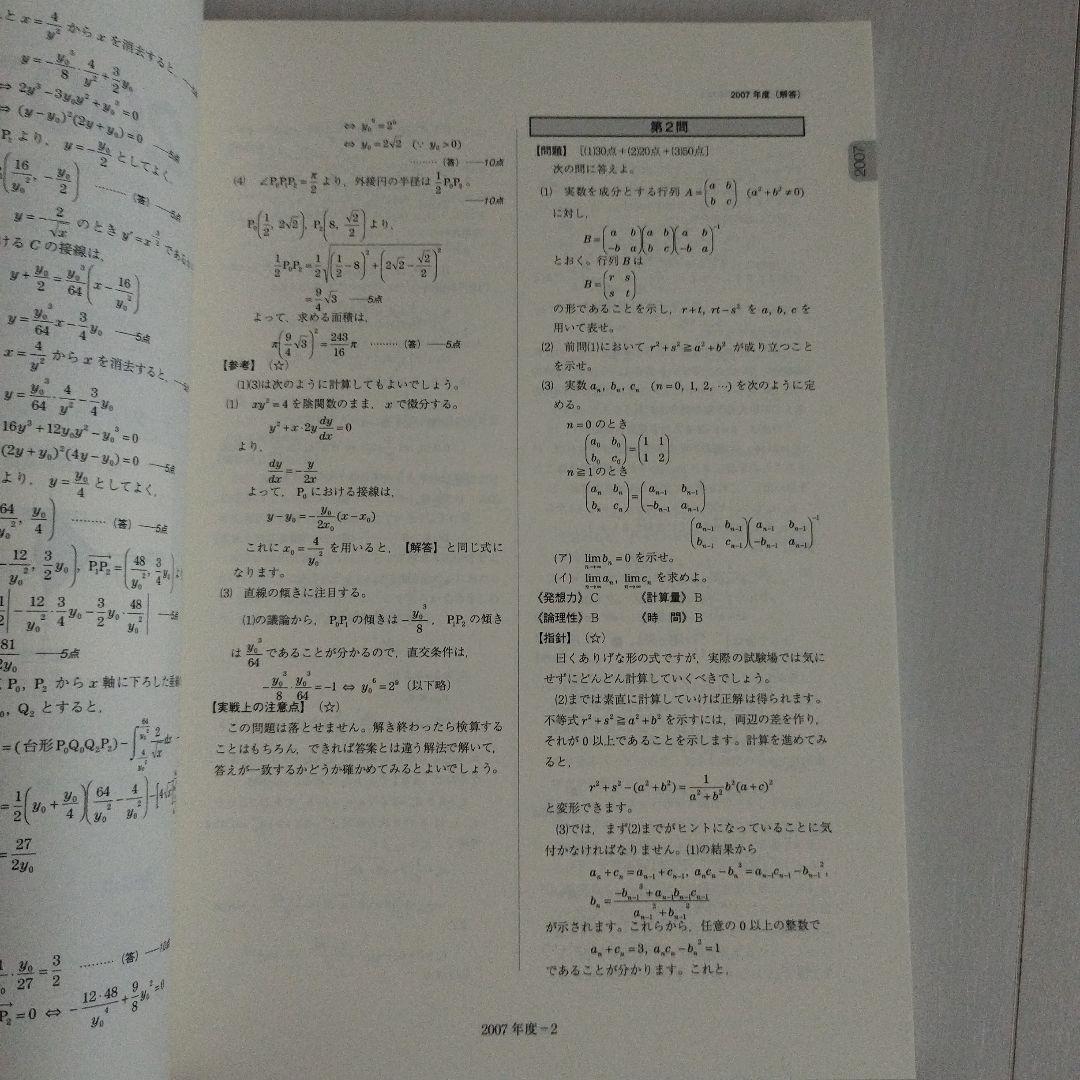 と x=4/y² からxを消去すると,
y=-y₀³/8・4/y²+3/2 y₀
⇔ 2y³-3y₀y²+y₀³=0
⇔ (y-y₀)²(2y+y₀)=0
P₁ より, y=-y₀/2 としてよく ―5点
(16/y₀², -y₀/2) ……… (答) ―5点
y=-2/√x のとき
ける C の接線は,
y+y₀/2=y₀³/64(x-16/y₀²)
y=y₀³/64 x-3/4 y₀ ―5点
x=4/y² からxを消去すると,
y=y₀³/64・4/y²-3/4 y₀
16y³+12y₀y²-y₀³=0
(2y+y₀)²(4y-y₀)=0 ―5点
より, y=y₀/4 としてよく,
(64/y₀², y₀/4) ……… (答) ―5点
-12/y₀², 3/2 y₀), P₁P₂=(48/y₀², 3/4 y₀)
|-12/y₀²・3/4 y₀-3/2 y₀・48/y₀²| ―5点
81/2y₀ ―5点
P₀, P₂ からx軸に下ろした垂線
Q₂ とすると,
=(台形P₀Q₀Q₂P₂)-∫
=1/2(y₀+y₀/4)(64/y₀²-4/y₀²)-
=27/2y₀
・y₀/27=3/2 ……… (答) ―10点
P₂=0 ⇔ -12・48/y₀⁴+9/8 y₀²=0
⇔ y₀⁶=2⁹
⇔ y₀=2√2 (∵ y₀>0)
……… (答) ―10点
(4) ∠P₀P₁P₂=π/2 より, 外接円の半径は 1/2 P₀P₂。
―10点
P₀(1/2, 2√2), P₂(8, √2/2) より,
1/2 P₀P₂=1/2√((1/2-8)²+(2√2-√2/2)²)
=9/4√3 ―5点
よって, 求める面積は,
π(9/4√3)²=243/16 π ……… (答) ―5点
【参考】(☆)
(1)(3)は次のように計算してもよいでしょう。
(1) xy²=4を陰関数のまま, xで微分する。
y²+x・2y dy/dx=0
より,
dy/dx=-y/2x
よって, P₀における接線は,
y-y₀=-y₀/2x₀(x-x₀)
これに x₀=4/y₀² を用いると, 【解答】と同じ式に
なります。
(3) 直線の傾きに注目する。
(1)の議論から, P₀P₁の傾きは -y₀³/8, P₁P₂の傾き
は y₀³/64 であることが分かるので, 直交条件は,
-y₀³/8・y₀³/64=-1 ⇔ y₀⁶=2⁹ (以下略)
【実戦上の注意点】(☆)
この問題は落とせません。解き終わったら検算する
ことはもちろん, できれば答案とは違う解法で解いて,
答えが一致するかどうか確かめてみるとよいでしょう。
2007年度(解答)
2007
第2問
【問題】 [(1)30点+(2)20点+(3)50点]
次の問に答えよ。
(1) 実数を成分とする行列 A=(a b / b c) (a²+b²≠0)
に対し,
B=(a b / -b a)(a b / b c)(a b / -b a)⁻¹
とおく。行列Bは
B=(r s / s t)
の形であることを示し, r+t, rt-s² を a, b, c を
用いて表せ。
(2) 前問(1)において r²+s²≧a²+b² が成り立つこと
を示せ。
(3) 実数 aₙ, bₙ, cₙ (n=0, 1, 2, …) を次のように定
める。
n=0のとき
(a₀ b₀ / b₀ c₀)=(1 1 / 1 2)
n≧1のとき
(aₙ bₙ / bₙ cₙ)=(aₙ₋₁ bₙ₋₁ / -bₙ₋₁ aₙ₋₁)
(aₙ₋₁ bₙ₋₁ / bₙ₋₁ cₙ₋₁)(aₙ₋₁ bₙ₋₁ / -bₙ₋₁ aₙ₋₁)⁻¹
(ア) lim n→∞ bₙ=0 を示せ。
(イ) lim n→∞ aₙ, lim n→∞ cₙ を求めよ。
《発想力》C 《計算量》B
《論理性》B 《時 間》B
【指針】(☆)
曰くありげな形の式ですが, 実際の試験場では気に
せずにどんどん計算していくべきでしょう。
(2)までは素直に計算していけば正解は得られます。
不等式 r²+s²≧a²+b² を示すには, 両辺の差を作り,
それが0以上であることを示します。計算を進めてみ
ると,
r²+s²-(a²+b²)=1/(a²+b²) b²(a+c)²
と変形できます。
(3)では, まず(2)までがヒントになっていることに気
付かなければなりません。(1)の結果から
aₙ+cₙ=aₙ₋₁+cₙ₋₁, aₙcₙ-bₙ²=aₙ₋₁cₙ₋₁-bₙ₋₁²,
bₙ=(-bₙ₋₁³+aₙ₋₁bₙ₋₁cₙ₋₁)/(aₙ₋₁²+bₙ₋₁²)
が示されます。これらから, 任意の0以上の整数で
aₙ+cₙ=3, aₙcₙ-bₙ²=1
であることが分かります。これと,
2007年度=2